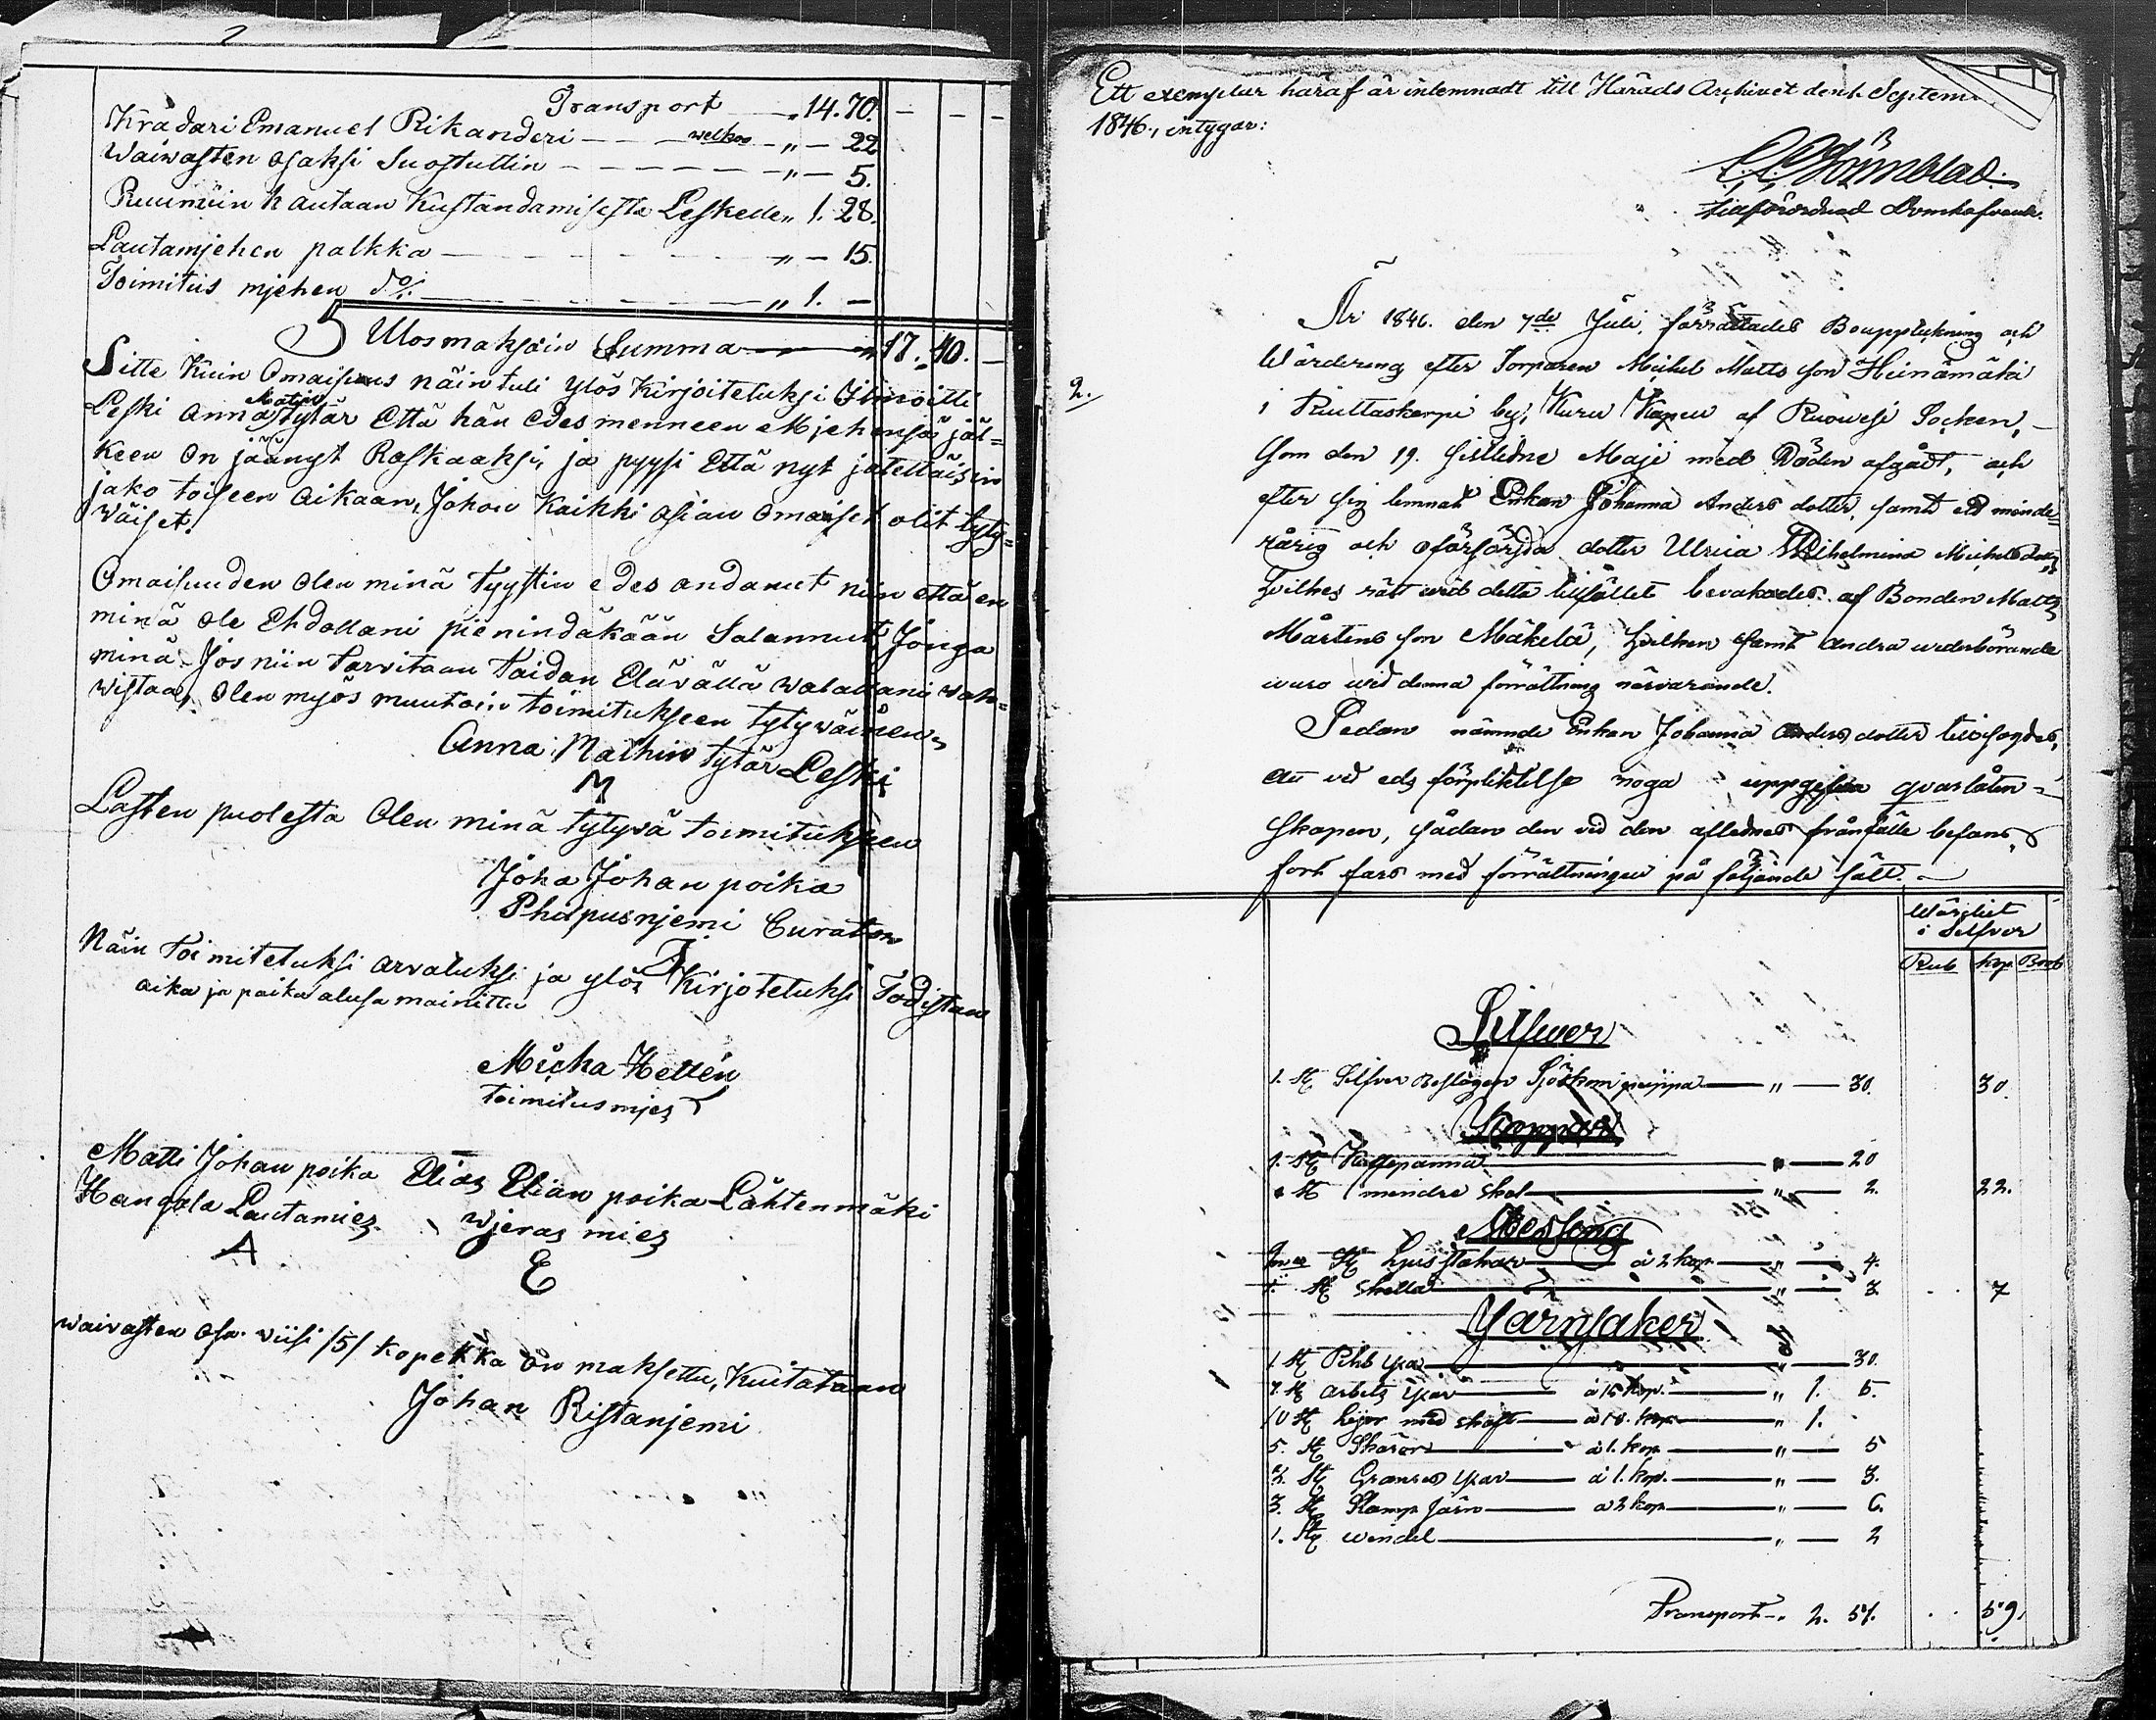 2
Transport — „ 14. 70. — — —
Krädäri Emanuel Rikanderi — welkaa — „ — 22
Waiwasten osaksi Suostuttin — — — „ — 5.
Ruumiin hautaan kustandamisesta Leskelle „ 1. 28.
Lautamjehen palkka — „ — 15.
Toimitus mjehen do/: — „ 1. —
Ulosmaksoin Summa — „ 17. 40. —
Sitte kuin Omaisuus näin tuli ylös kirjoitetuksi Ilmoitti
Leski Anna Matin tytär Että hän edes menneen Mjehensä jäl=
keen on jäänyt Raskaaksi, ja pyysi Että nyt jätettäisin
jako toiseen aikaan, Johon kaikki asian omaiset olit tyty=
wäiset.
Omaisuuden olen minä Tyystin edes andanut niin että en
minä ole Ehdollani pienindäkään Salannut, Jonga
minä Jos niin Tarvitaan Taidan Elävällä walallani wah=
wistaa, Olen myös muutoin toimitukseen tytywäinen
Anna Mathin tytär Leski
M
Lasten puolesta Olen minä tytyvä toimitukseen
Joha Johan poika
Phapusnjemi Curator
I
Näin Toimitetuksi arvatuksi ja ylös kirjotetuksi Todistan
aika ja paika alusa mainittu
Micha Hellén
Toimitusmjes
Matti Johan poika Elias Elian poika Lähtenmäki
Hangala Lautamies wjeras mies
A E
waivasten osa viisi /5/ kopekka on maksettu, kuitataan
Johan Ristanjemi
Ett exemplar häraf är inlemnadt till Härads Archivet den 1. Septem
1846., intygar:
tillförordnad Domhafvande.
2.
År 1846. den 7de Juli, förrättades Bouppteckning och
Wärdering efter Torparen Michel Matts son Heinämäki
i Riuttaskorpi by, Kuru Kapell af Ruowesi Socken,
som den 19. sistledne Maji med Döden afgådt, och
efter sig lemnat Enkan Johanna Anders dotter, samt ett minde=
rårig och oförsörjda dotter Ulrica Wilhelmina Michelsdotter,
hvilkes rätt wid detta tillfället bevakades af Bonden Matts
Mårtens son Mäkelä, hvilken samt andra wederbörande
woro wid denna förrättning närvarande.
Sedan nämnde Enkan Johanna Anders dotter tillsagdes,
att vid eds förpliktelse noga uppgifva qvarlåten=
skapen, sådan den vid den aflednes frånfälle befans,
fort fars med förrättningen på följande sätt. —
Wärdiet
i Silfver
Rub kop Bråk
Silfwer
1. St Silfver Beslagen Sjöskum pippa — „ — 30. 30.
Koppar
1. St Kaffepanna — „ — 20
St mindre skål — „ — 2. 22.
Messong
2ne St Ljusstakar — à 2 kop — „ — 4.
1. St Skella — „ — 3 7
Järnsaker
1. St Pihl yxa — „ — 30.
7. St arbets yxar — à 15 kop. — „ 1. 5.
10 St Lijor med skaft — à 10. kop — „ 1.
5. St Skäror — à 1. kop — „ — 5
3. St Grances yxar — à 1. kop. — „ — 3.
3. St Stamp Järn — à 2 kop — „ — 6.
1. St windel — „ — 2
Transport „ 2. 51. 59.